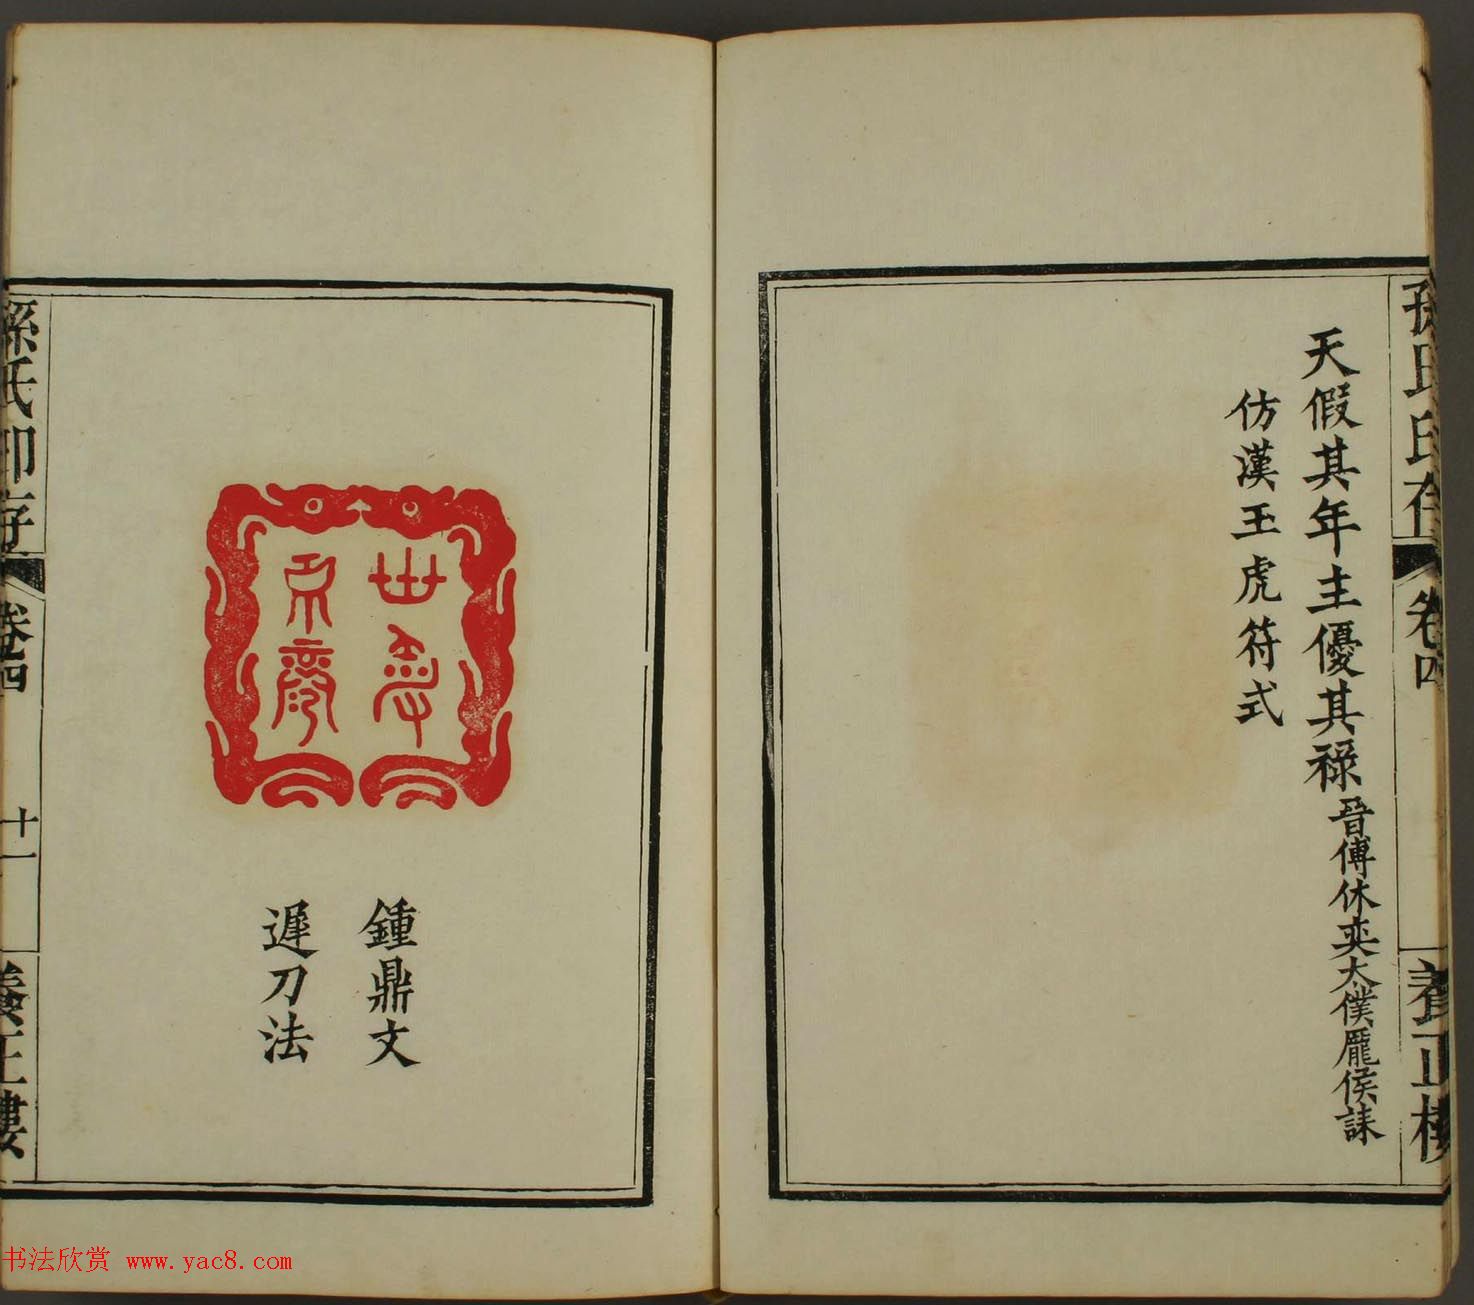 孫氏印存
卷四
養正樓
天假其年主優其祿晉傅休奕太僕龐侯誄
仿漢玉虎符式
世壽
鍾鼎文
遲刀法
孫氏印存
卷四
十一
養正樓
书法欣赏 www.yac8.com